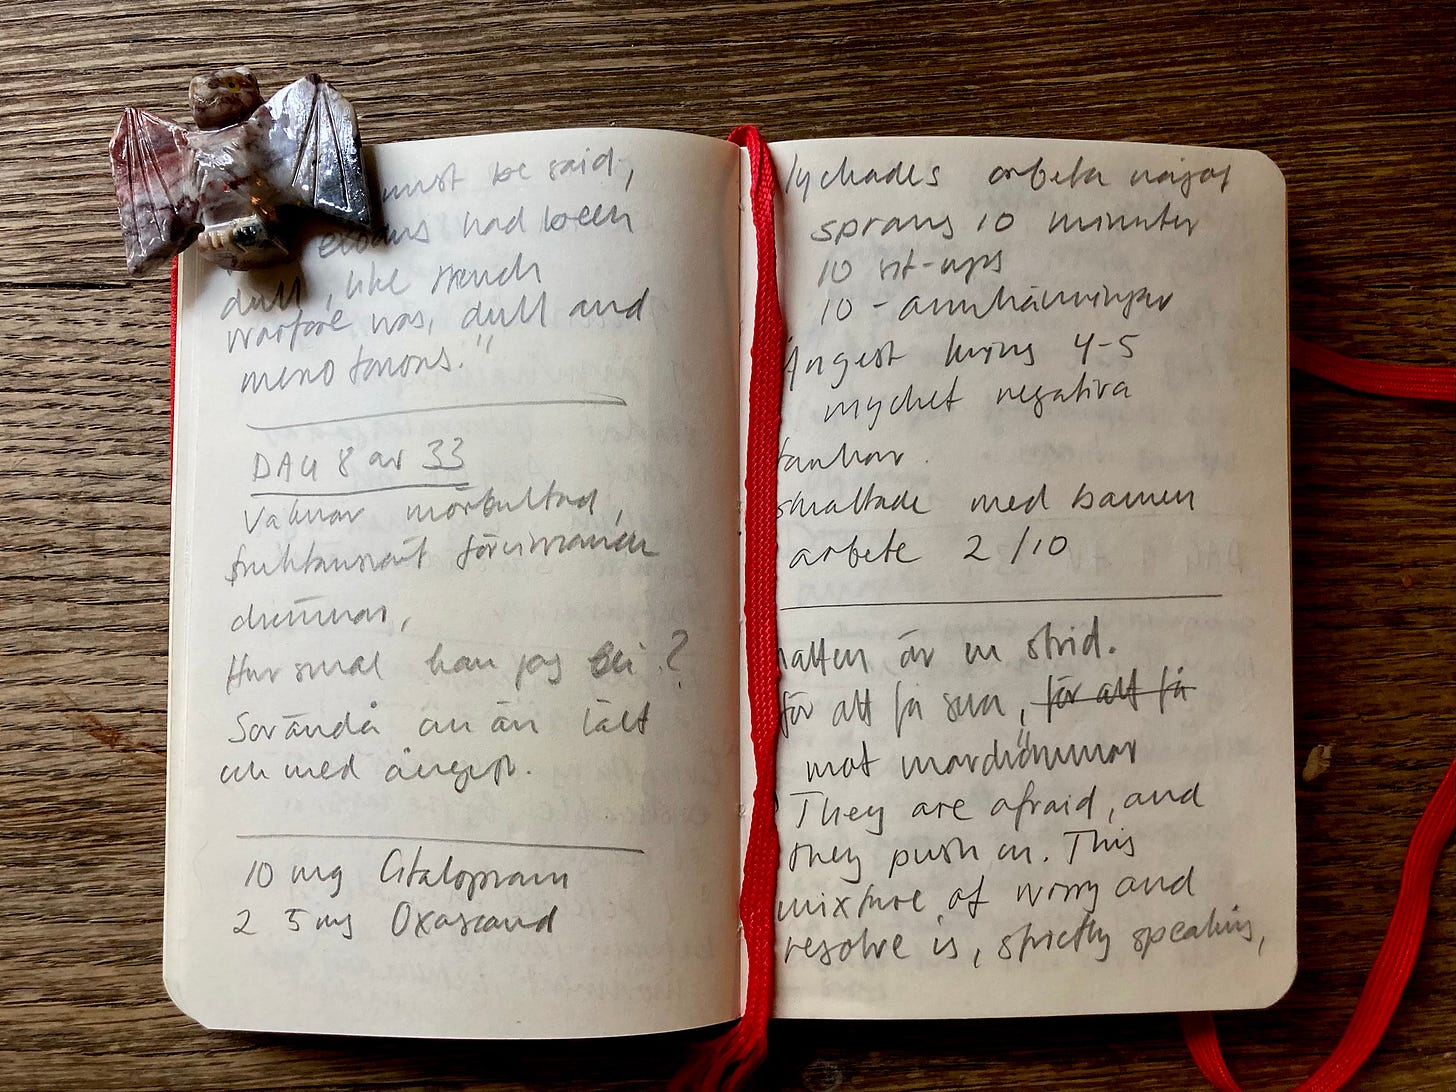 must be said,
had been
dull, like trench
warfare was, dull and
monotonous."
DAG 8 av 33
Vaknar mörbultad,
fruktansvärt förvirrande
drömmar,
Hur smal kan jag bli?
än än tält
och med ångest.
10 mg Citalopram
2 5 mg Oxascand
lyckades arbeta något
sprang 10 minuter
10 sit-ups
10 - armhävningar
Ångest kring 4-5
mycket negativa
tankar.
snattade med barnen
arbete 2/10
natten är en strid.
för att få sova, för att få
mot mardrömmar
"They are afraid, and
they push on. This
mixture of worry and
resolve is, strictly speaking,